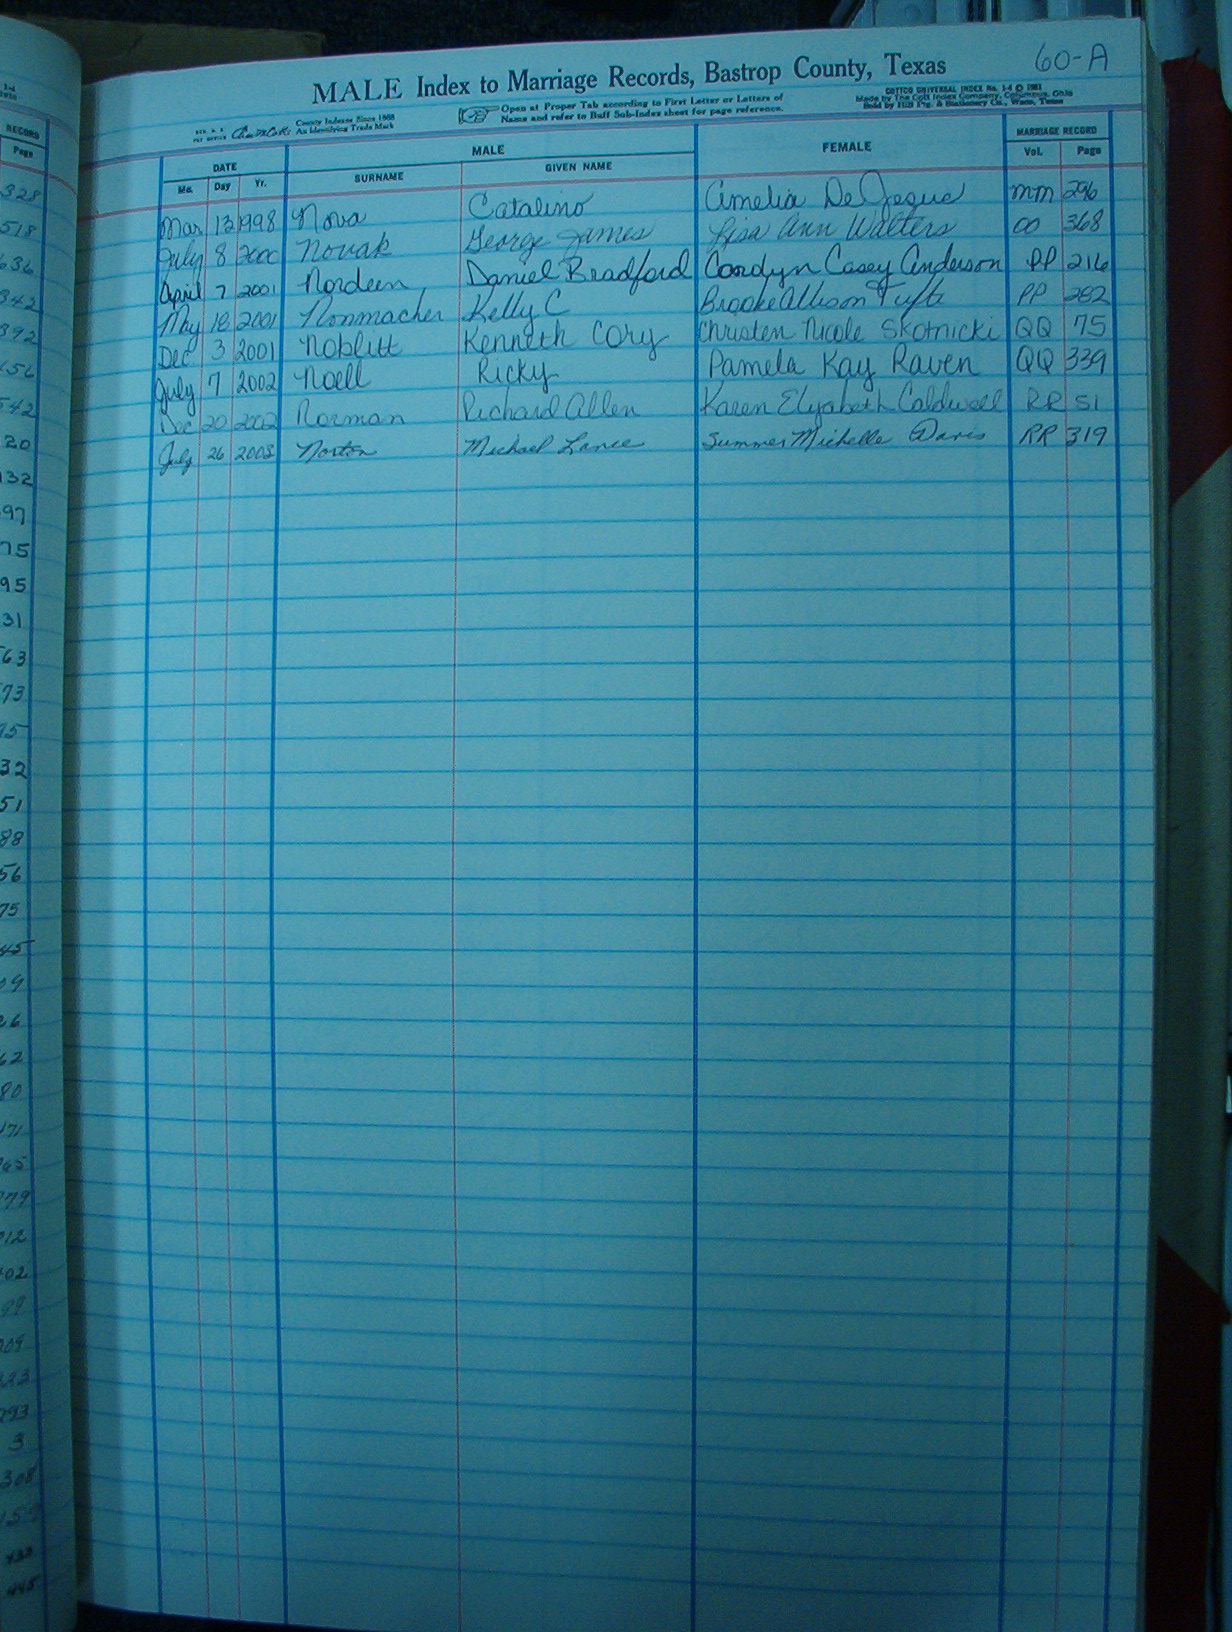 60-A
MALE Index to Marriage Records, Bastrop County, Texas
County Indexes Since 1888
An Identifying Trade Mark
Open at Proper Tab according to First Letter or Letters of
Name and refer to Buff Sub-Index sheet for page reference.
COTTCO UNIVERSAL INDEX No. 1-4 © 1981
Made by The Cott Index Company, Columbus, Ohio
Sold by Hill Ptg. & Stationery Co., Waco, Texas
RECORD
Page
DATE MALE FEMALE MARRIAGE RECORD
Mo. Day Yr. SURNAME GIVEN NAME Vol. Page
Mar 13 1998 Nova Catalino Amelia De mm 296
July 8 2000 Novak George James Lisa Ann Walters OO 368
April 7 2001 Nordeen Daniel Bradford Carolyn Casey Anderson PP 216
May 18 2001 Nonmacher Kelly C Brooke Allison Tufts PP 282
Dec 3 2001 Noblitt Kenneth Cory Christen Nicole Skotnicki QQ 75
July 7 2002 Noell Ricky Pamela Kay Raven QQ 339
Dec 20 2002 Norman Richard Allen Karen Elizabeth Caldwell RR 51
July 26 2003 Norton Michael Lance Summer Michelle Davis RR 319
328
518
636
342
392
542
20
132
97
75
95
31
63
73
95
32
51
88
56
75
45
09
26
62
80
171
265
279
212
402
99
209
223
293
3
308
159
433
445